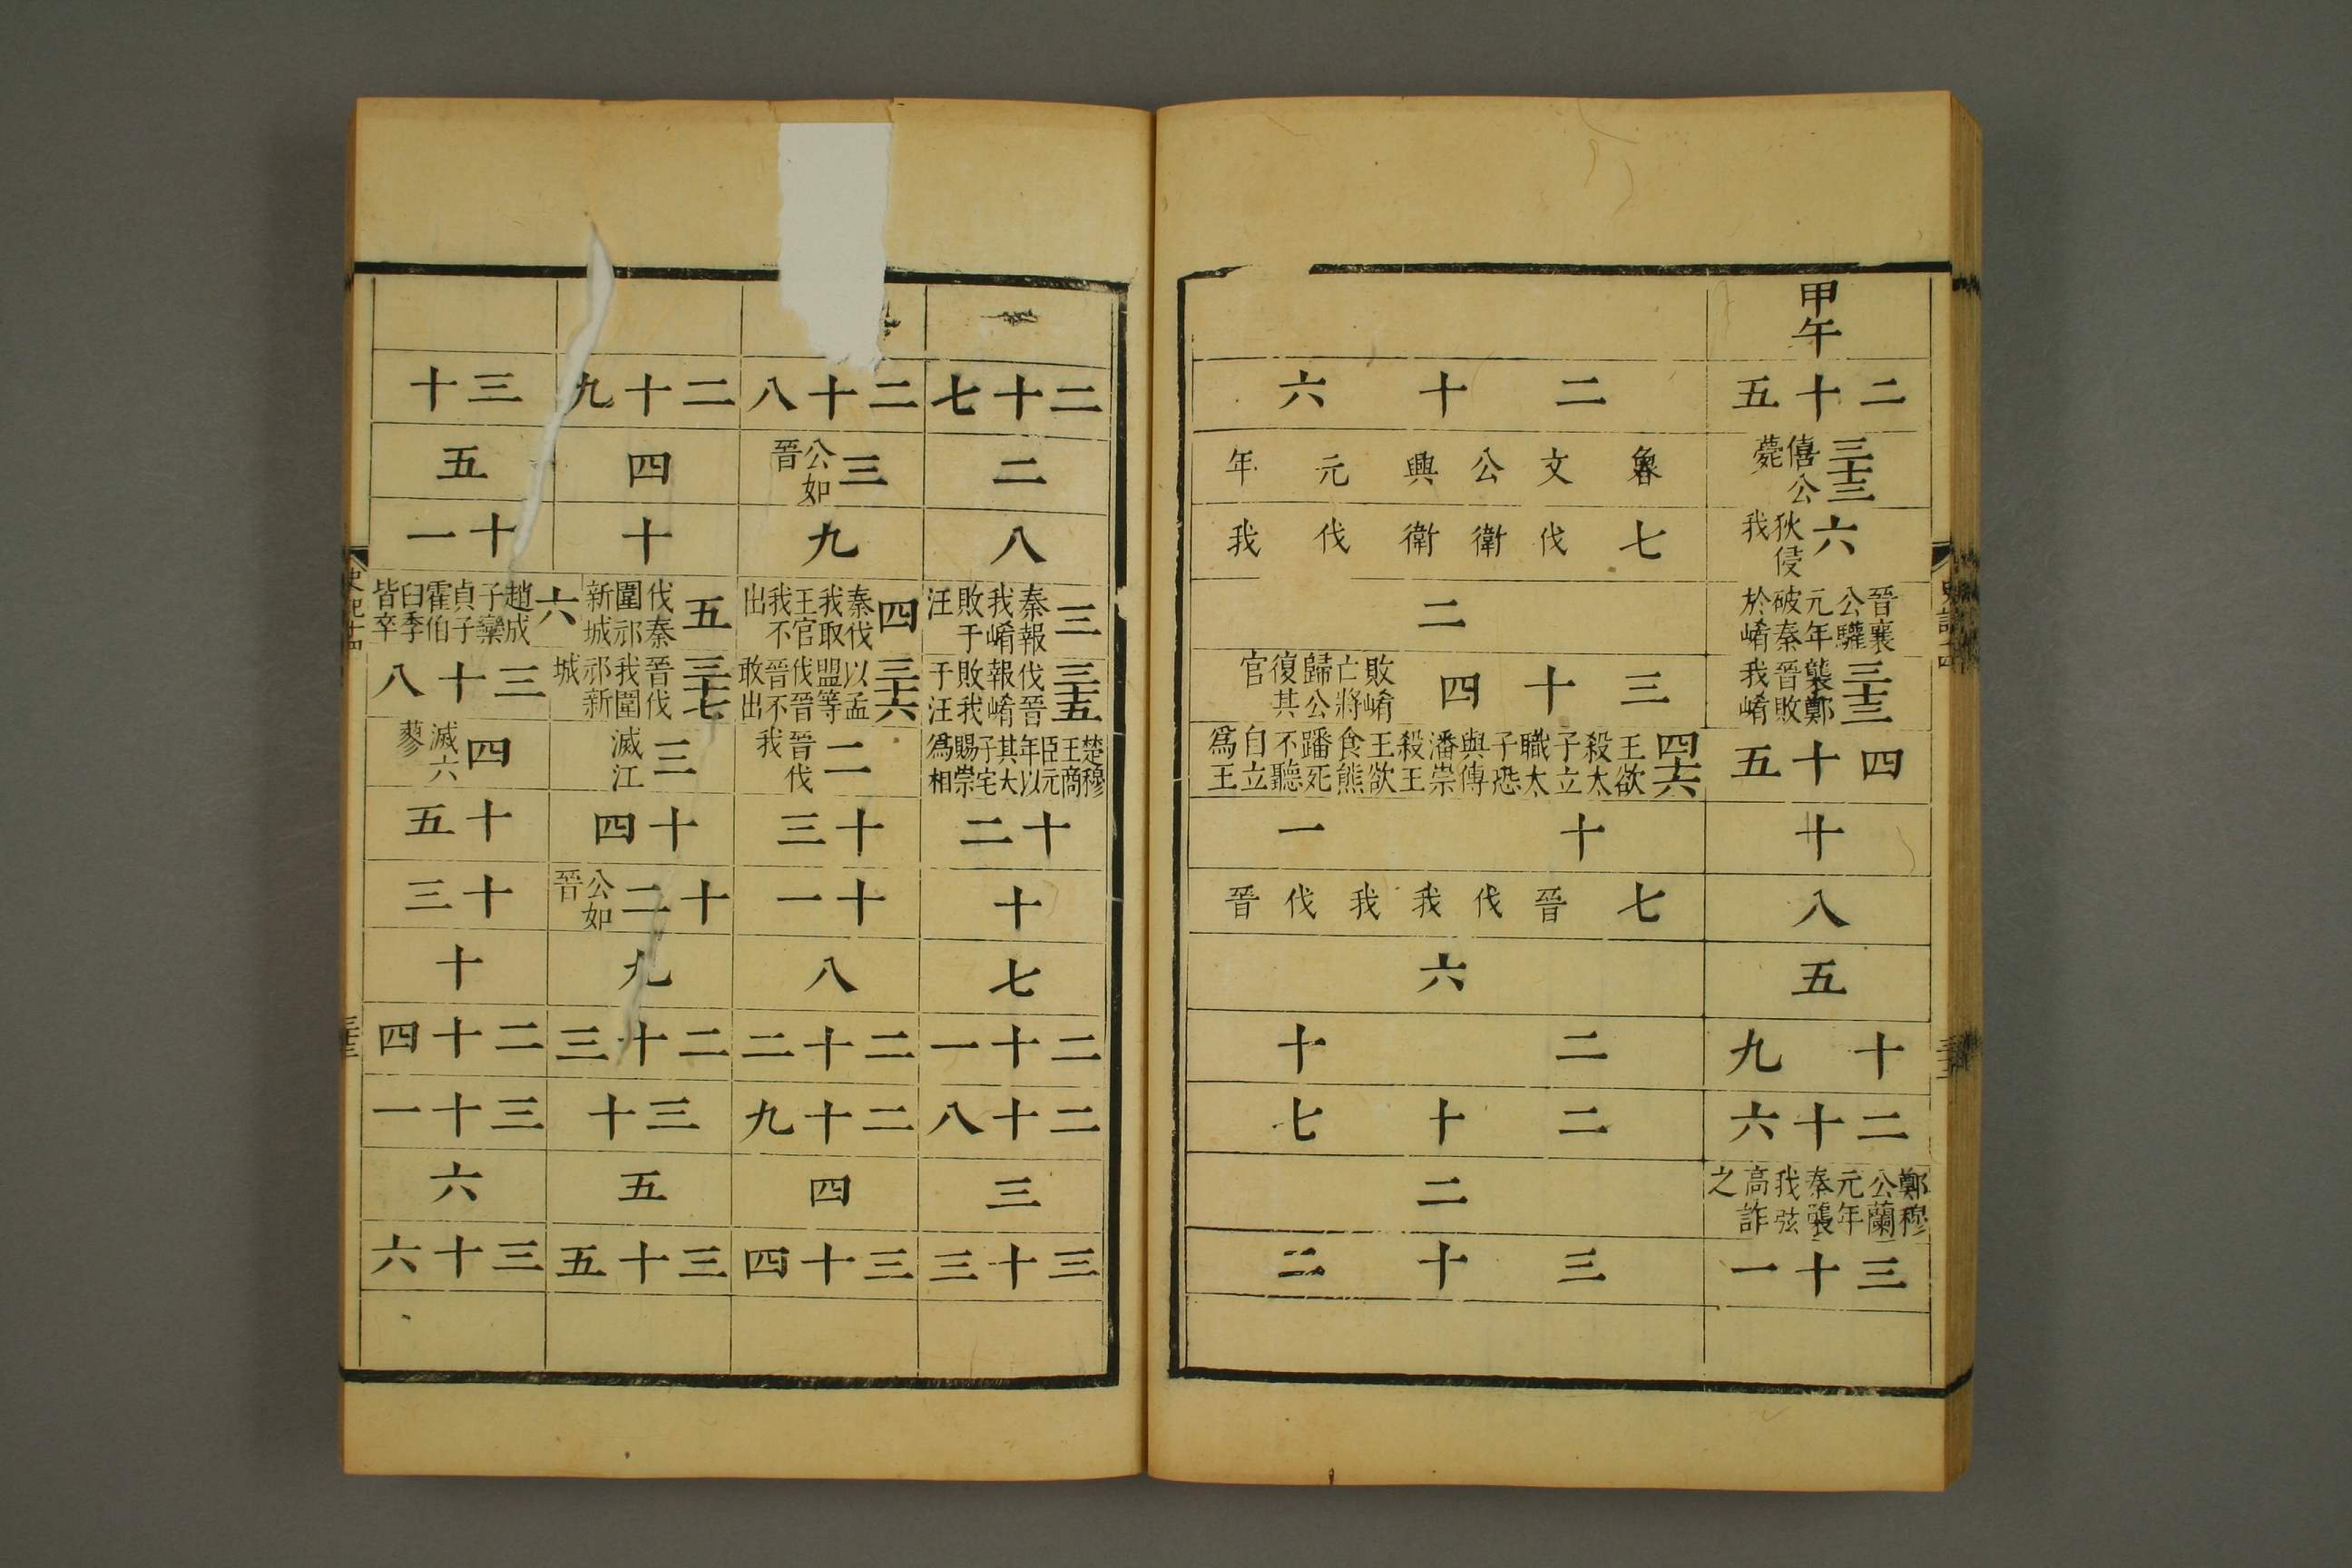 甲午
二十五
三十三 僖公薨
六 狄侵我
晉襄公驩元年破秦於崤
三十三 襲鄭晉敗我崤
四十五
十
八
五
十九
二十六
鄭穆公蘭元年秦襲我弦高詐之
三十一
二十六
魯文公興元年
七 伐衛衛伐我
二
三十四 敗崤亡將歸公復其官
四十六 王欲殺太子立職太子恐與傅潘崇殺王王欲食熊蹯死不聽自立爲王
十一
七 晉伐我我伐晉
六
二十
二十七
二
三十二
二十七
二
八
三 秦報我崤敗于汪
三十五 伐晉報崤敗我于汪
楚穆王商臣元年以其大子宅賜崇爲相
十二
十
七
二十一
二十八
三
三十三
二十八
三 公如晉
九
四 秦伐我取王官我不出
三十六 以孟盟等伐晉晉不敢出
二 晉伐我
十三
十一
八
二十二
二十九
四
三十四
二十九
四
十
五 伐秦圍祁新城
三十七 晉伐我圍祁新城
三 滅江
十四
十二 公如晉
九
二十三
三十
五
三十五
三十
五
十一
六 趙成子欒貞子霍伯臼季皆卒
三十八
四 滅六蓼
十五
十三
十
二十四
三十一
六
三十六
史記十四